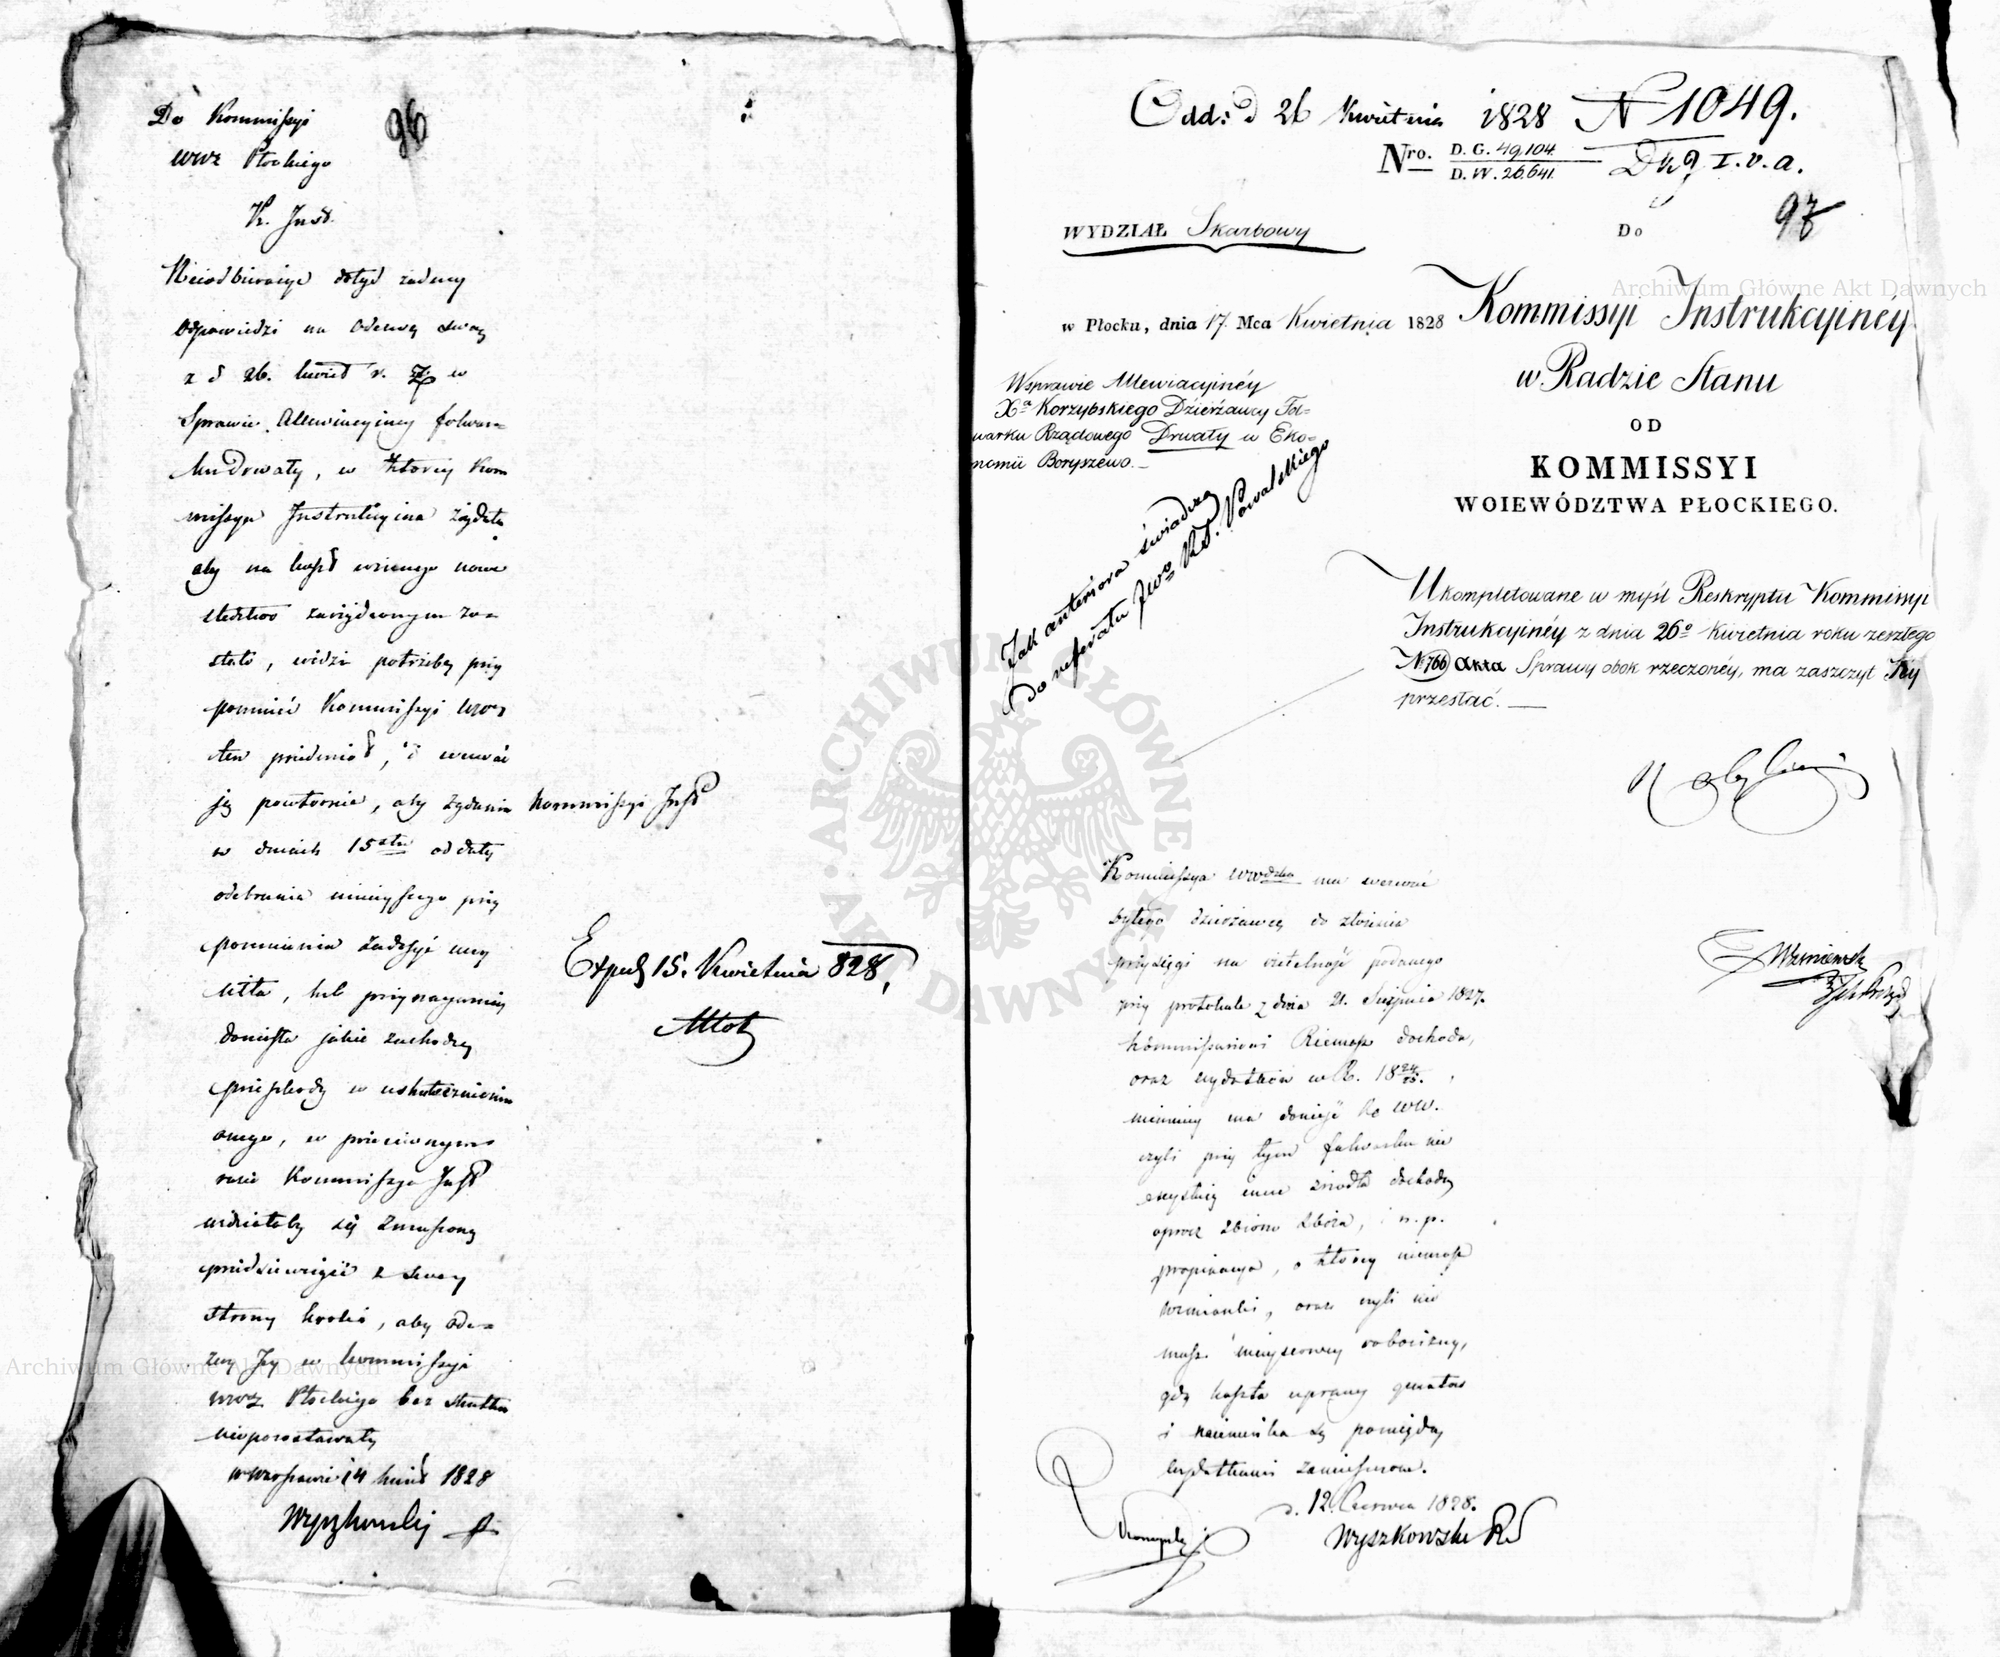 96
Do Kommissyi
Wwa Płockiego
K. Inst.
Nieodbierając dotąd żadney
odpowiedzi na odezwę swoią
z d 26. kwiet r. z. w
Sprawie Allewiacyiney folwar=
ku Drwały, w ktorey Kom
missya Instrukcyina żądała
aby na koszt
śledztwo zarządzonym zo=
stało, widzi potrzebę przy
pomnieć Kommissyi Wwa
ten przedmiot, i wezwać
ją powtornie, aby żądaniu Kommissyi Inst
w dniach 15stu od daty
odebrania ninieyszego przy
pomnienia zadosyć uczy
niła, lub przynaymniey
doniosła jakie zachodzą
przeszkody w uskutecznieniu
onego, w przeciwnym
razie Kommissya Inst
widziałaby się zmuszoną
przedsiewziąść z swey
strony kroki, aby ode=
zwy Jey w kommissyi
Wwa Płockiego bez skutku
niepozostawały
w Warszawie 14 kwiet 1828
Wyszkowski
Exped 15. Kwietnia 828,
Odd: d 26 Kwietnia 1828 N 1049.
Nro. D. G. 49,104.
D. W. 26,641.
I. v. a.
97
WYDZIAŁ Skarbowy
Do
Kommissyi Instrukcyinéy
w Radzie Stanu
OD
KOMMISSYI
WOIEWÓDZTWA PŁOCKIEGO.
w Płocku, dnia 17. Mca Kwietnia 1828
Wsprawie Allewiacyinéy
Xa Korzybskiego Dzierżawcy Fol=
warku Rządowego Drwały w Eko=
nomii Boryszewo.
Jak anteriora świadczą
do referatu Jwo Kowalskiego
Ukompletowane w myśl Reskryptu Kommissyi
Instrukcyinéy z dnia 26o Kwietnia roku zeszłego
N 766 Akta Sprawy obok rzeczonéy, ma zaszczyt Jey
przesłać.
Kommissya Wwdzka ma wezwać
byłego dzierżawcę do złożenia
przysięgi na rzetelność podanego
przy protokule z dnia 21. Sierpnia 1827.
Kommissarzowi dochodu,
oraz wydatków w R. 18 24/25.
niemniey ma donieść Ko WW.
czyli przy tym folwarku nie
exystują inne źrodła dochodu
oprocz zbioru zboża, i n. p.
propinacya, o ktorey niemasz
wzmianki, oraz czyli nie
masz mieyscowey robocizny,
gdy koszta uprawy gruntow
i naiemnika są pomiędzy
wydatkami zamieszczone.
d. 12 Czerwca 1828.
Wyszkowski RS
Archiwum Główne Akt Dawnych
Archiwum Główne Akt Dawnych
ARCHIWUM GŁÓWNE AKT DAWNYCH